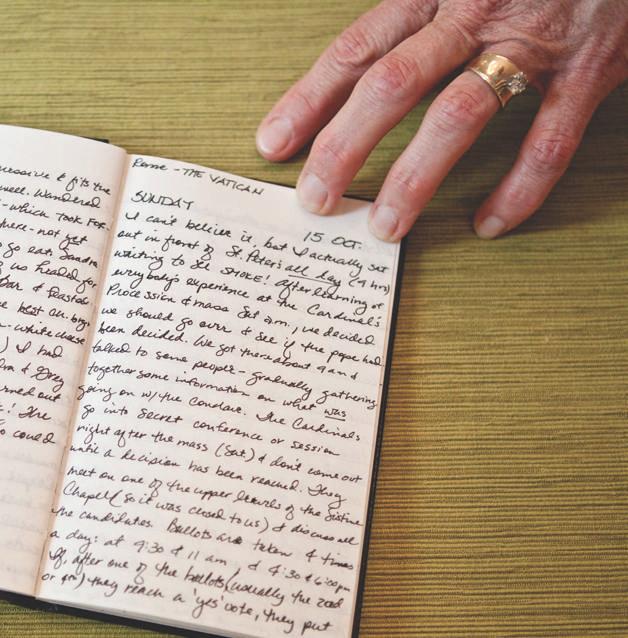 essive & fits the
well. Wandered
- which took For-
here - not yet
go eat. Sandra
we headed for
Bar & Feasted
best
- white cheese
) I had
& Greg
rned out
! The
so could
Rome - THE VATICAN
SUNDAY
15 OCT.
I can't believe it, but I actually sat
out in front of St. Peter's all day (9 hrs)
waiting to see SMOKE! After learning of
everybody's experience at the Cardinal's
Procession & mass Sat a.m., we decided
we should go over & see if the pope had
been decided. We got there about 9 and
talked to some people - gradually gathering
together some information on what was
going on w/ the Conclave. The Cardinals
go into secret conference or session
right after the mass (Sat) & don't come out
until a decision has been reached. They
meet on one of the upper levels of the Sistine
Chapel (so it was closed to us) & discuss all
the candidates. Ballots are taken 4 times
a day: at 9:30 & 11 am, & 4:30 & 6:00pm
If, after one of the ballots (usually the 2nd
or 4th) they reach a 'yes' vote, they put